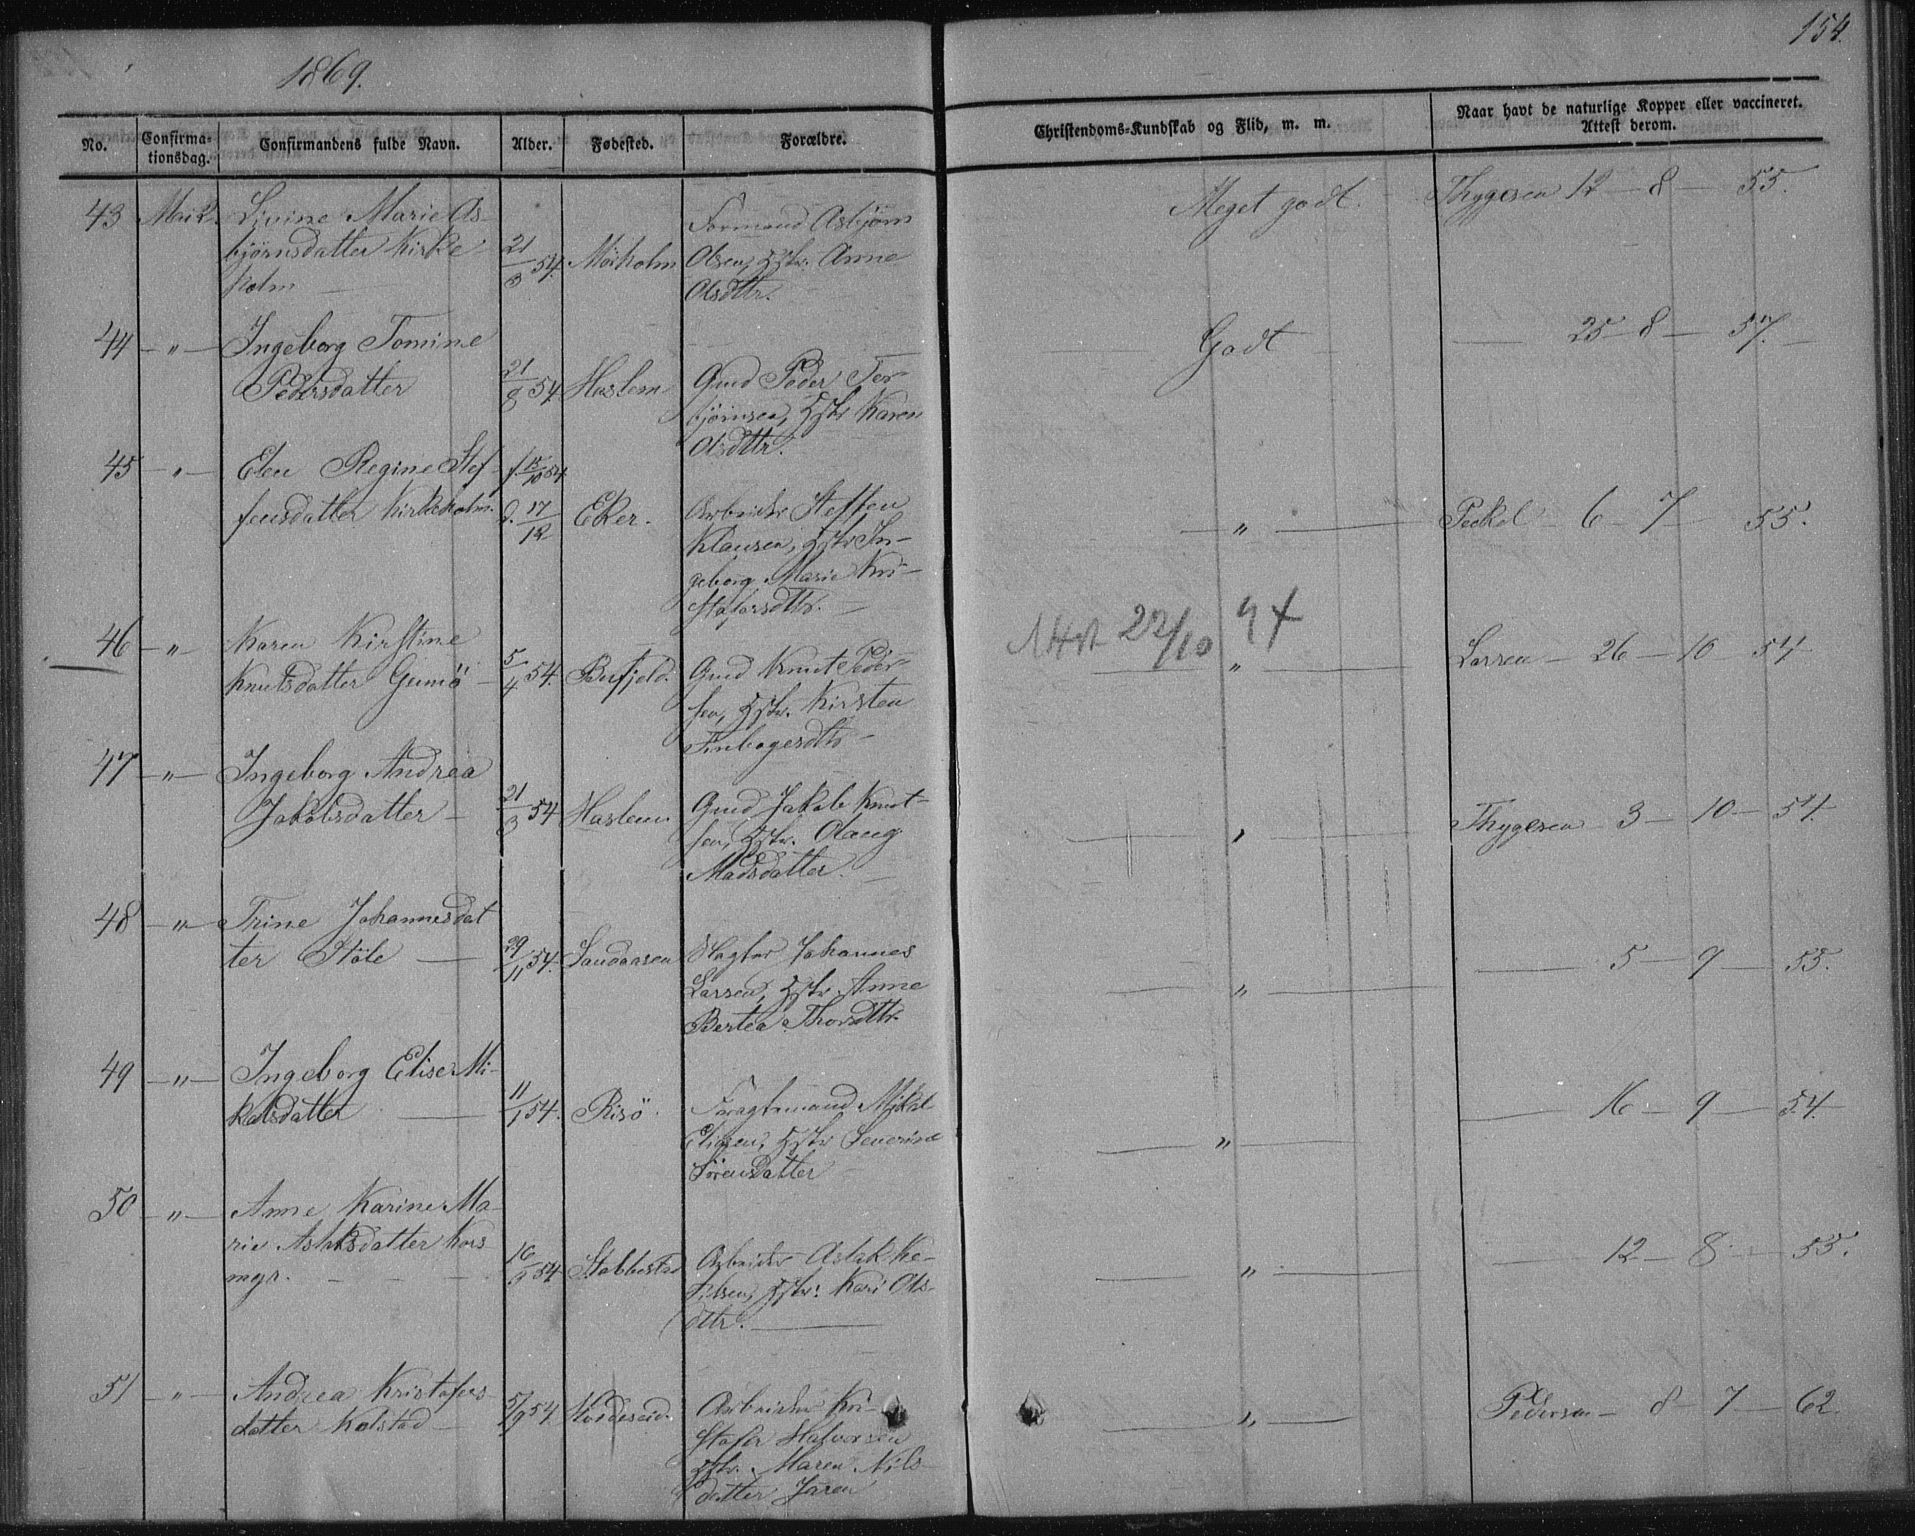 1869.
154.
No.
Confirma-
tionsdag.
Confirmandens fulde Navn.
Alder.
Fødested.
Forældre.
Christendoms-Kundskab og Flid, m. m.
Naar havt de naturlige Kopper eller vaccineret.
Attest derom.
43 Mai 2. Livine Marie As-
bjørnsdatter Kirke-
holm
21/3 54. Moiholm
Formand Asbjørn
Olsen, Hstr. Anne
Olsdttr.
Meget godt. Thygesen 12 - 8 - 55.
44 - " - Ingeborg Tomine
Pedersdatter
21/8 54 Haslem
Gmd Peder Ter-
bjørnsen, Hstr Karen
Olsdttr.
Godt 25 - 8 - 57.
45 - " - Elen Regine Stef-
fensdatter Kirkeholm.
f. 15/10 54
d. 17/12 Eker.
Arbeider Steffen
Klausen, Hstr In-
geborg Marie Kri-
stofersdttr.
" Peckel - 6 - 7 - 55.
46 - " - Karen Kirstine
Knutsdatter Gumö -
5/4 54. Bufjeld.
Gmd Knut Peder-
sen, Hstr. Kirsten
Finbogesdtr -
Attst 22/10 94
" Larsen - 26 - 10 - 54
47 - " - Ingeborg Andrea
Jakobsdatter -
21/3 54 Haslem
Gmd Jakob Knut-
sen, Hstr. Olaug
Madsdatter.
" Thygesen 3 - 10 - 54.
48 - " Trine Johannesdat
ter Stöle
29/11 54. Sandaasen
Johannes
Larsen, Hstr Anne
Bertea Thorsdttr.
" 5 - 9 - 55.
49 - " - Ingeborg Elise Mi-
kalsdatter
11/1 54. Risö.
Fragtemand Mikal
Eliasen, Hstr Severine
Sörensdatter
" 16 - 9 - 54.
50 - " - Anne Karine Ma-
rie Aslaksdatter Kors
mgr.
16/9 54 Stabbestad
Arbeider Aslak Ke-
tilsen, Hstr. Kari Ols-
dttr.
" 12 - 8 - 55.
51 - " - Andrea Kristofers-
datter Kalstad -
5/9 54. Kordeseid.
Arbeider Kri-
stofer Halvorsen
Hstr. Maren Nils-
datter Jaren
" Pedersen - 8 - 7 - 62.